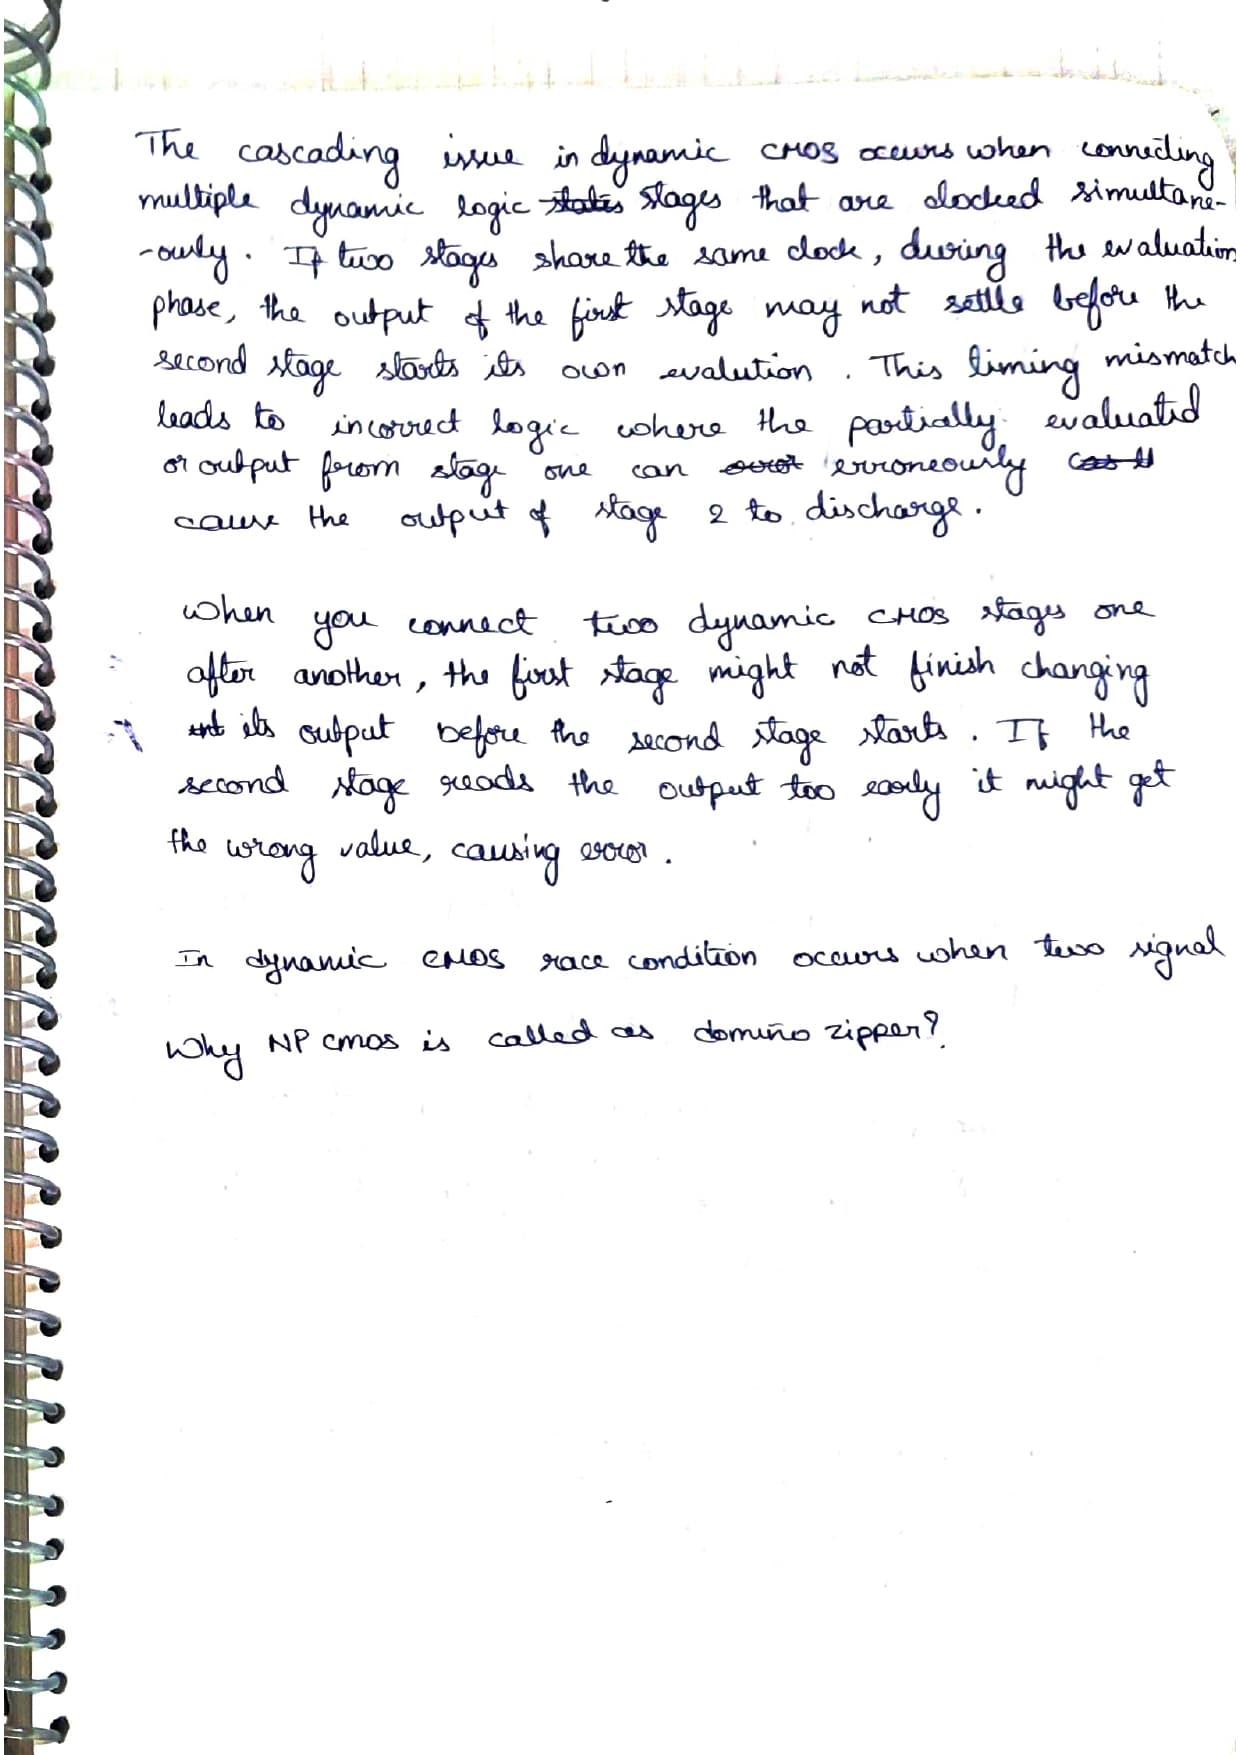 The cascading issue in dynamic CMOS occurs when connecting
multiple dynamic logic states stages that are clocked simultane-
-ously. If two stages share the same clock, during the evaluation
phase, the output of the first stage may not settle before the
second stage starts its own evalution. This timing mismatch
leads to incorrect logic where the partially evaluated
or output from stage one can erroneously
cause the output of stage 2 to discharge.
When you connect two dynamic CMOS stages one
after another, the first stage might not finish changing
its output before the second stage starts. If the
second stage reads the output too early it might get
the wrong value, causing error.
In dynamic CMOS race condition occurs when two signal
Why NP cmos is called as domino zipper?